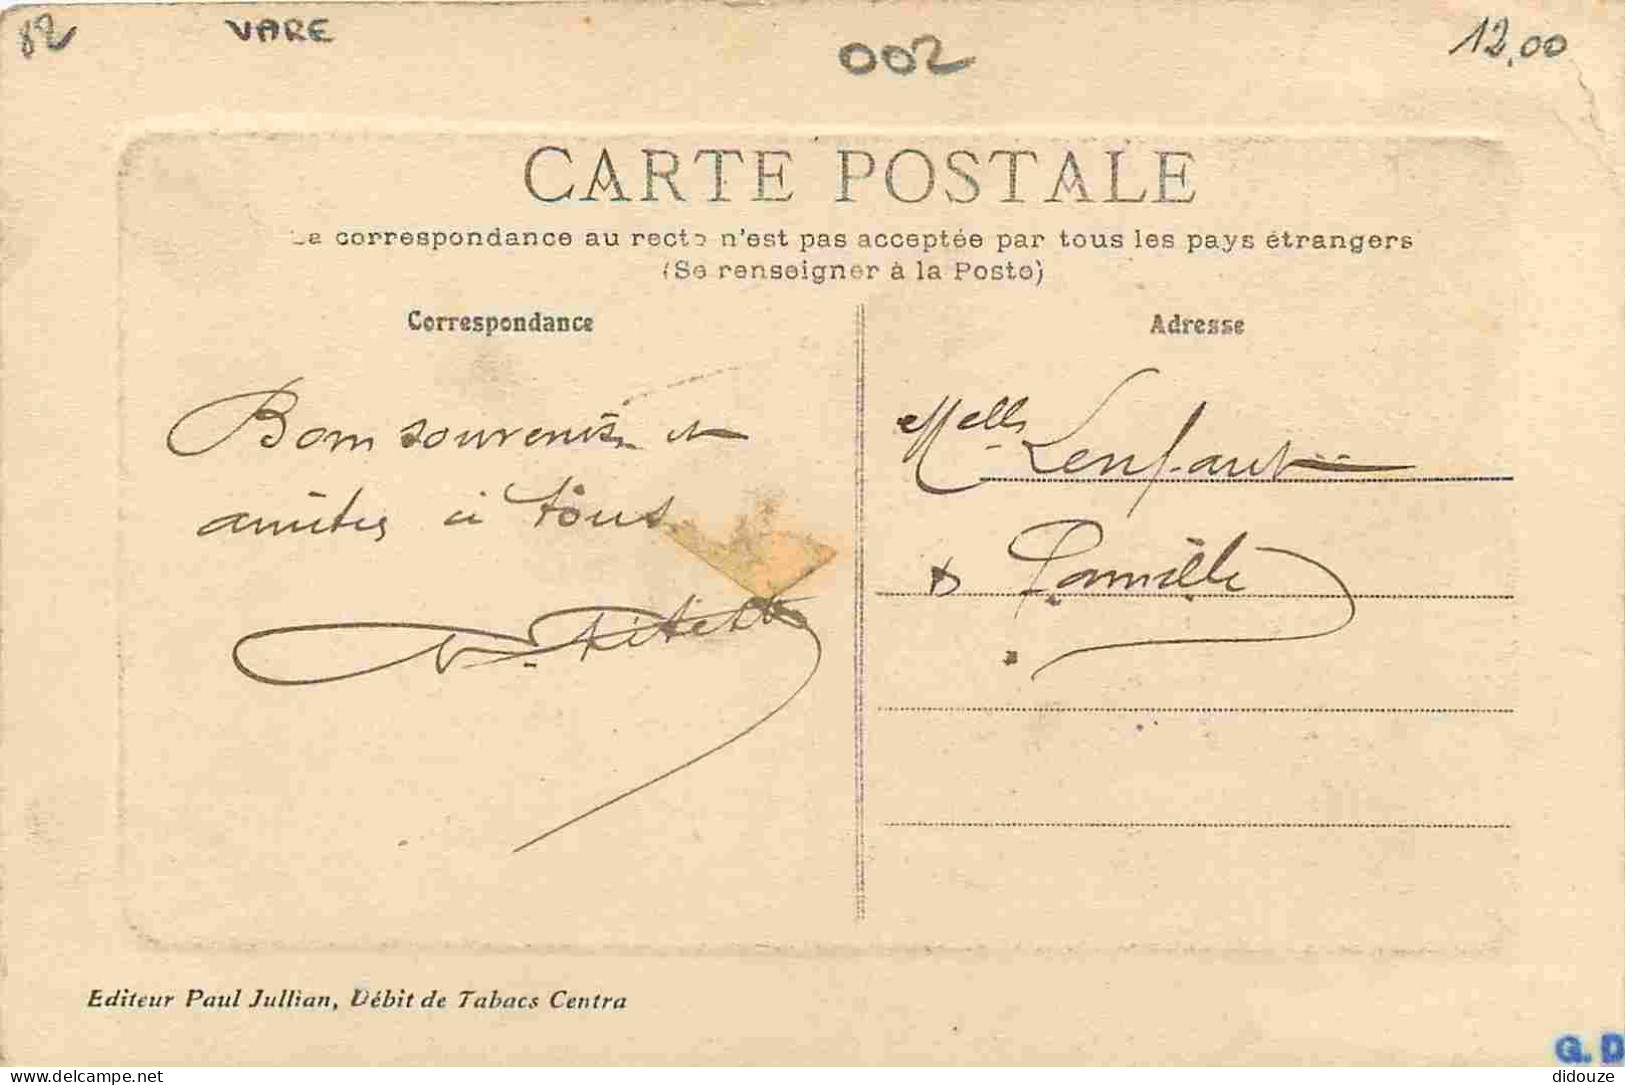 82 VARE 002 12,00
CARTE POSTALE
La correspondance au recto n'est pas acceptée par tous les pays étrangers
(Se renseigner à la Poste)
Correspondance
Bon souvenir et
amitiés à tous
Adresse
Melle Lenfant
& Famille
Editeur Paul Jullian, Débit de Tabacs Centra
G.D
didouze